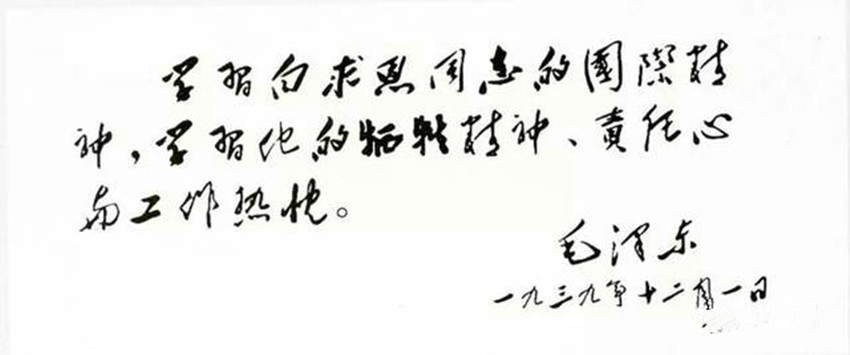 学習白求恩同志的國際精
神，学習他的牺牲精神、責任心
与工作热忱。
毛澤东
一九三九年十二月一日